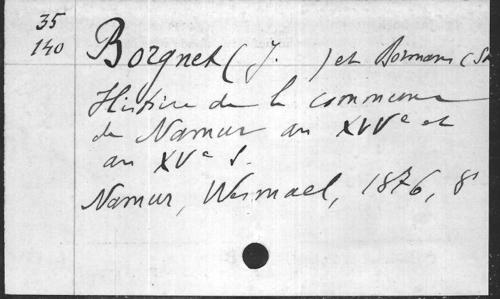 35
140
Borgnet (J. ) et Bormans (St
Histoire de la commune
de Namur au XIVe et
au XVe s.
Namur, Wesmael, 1876, 8°